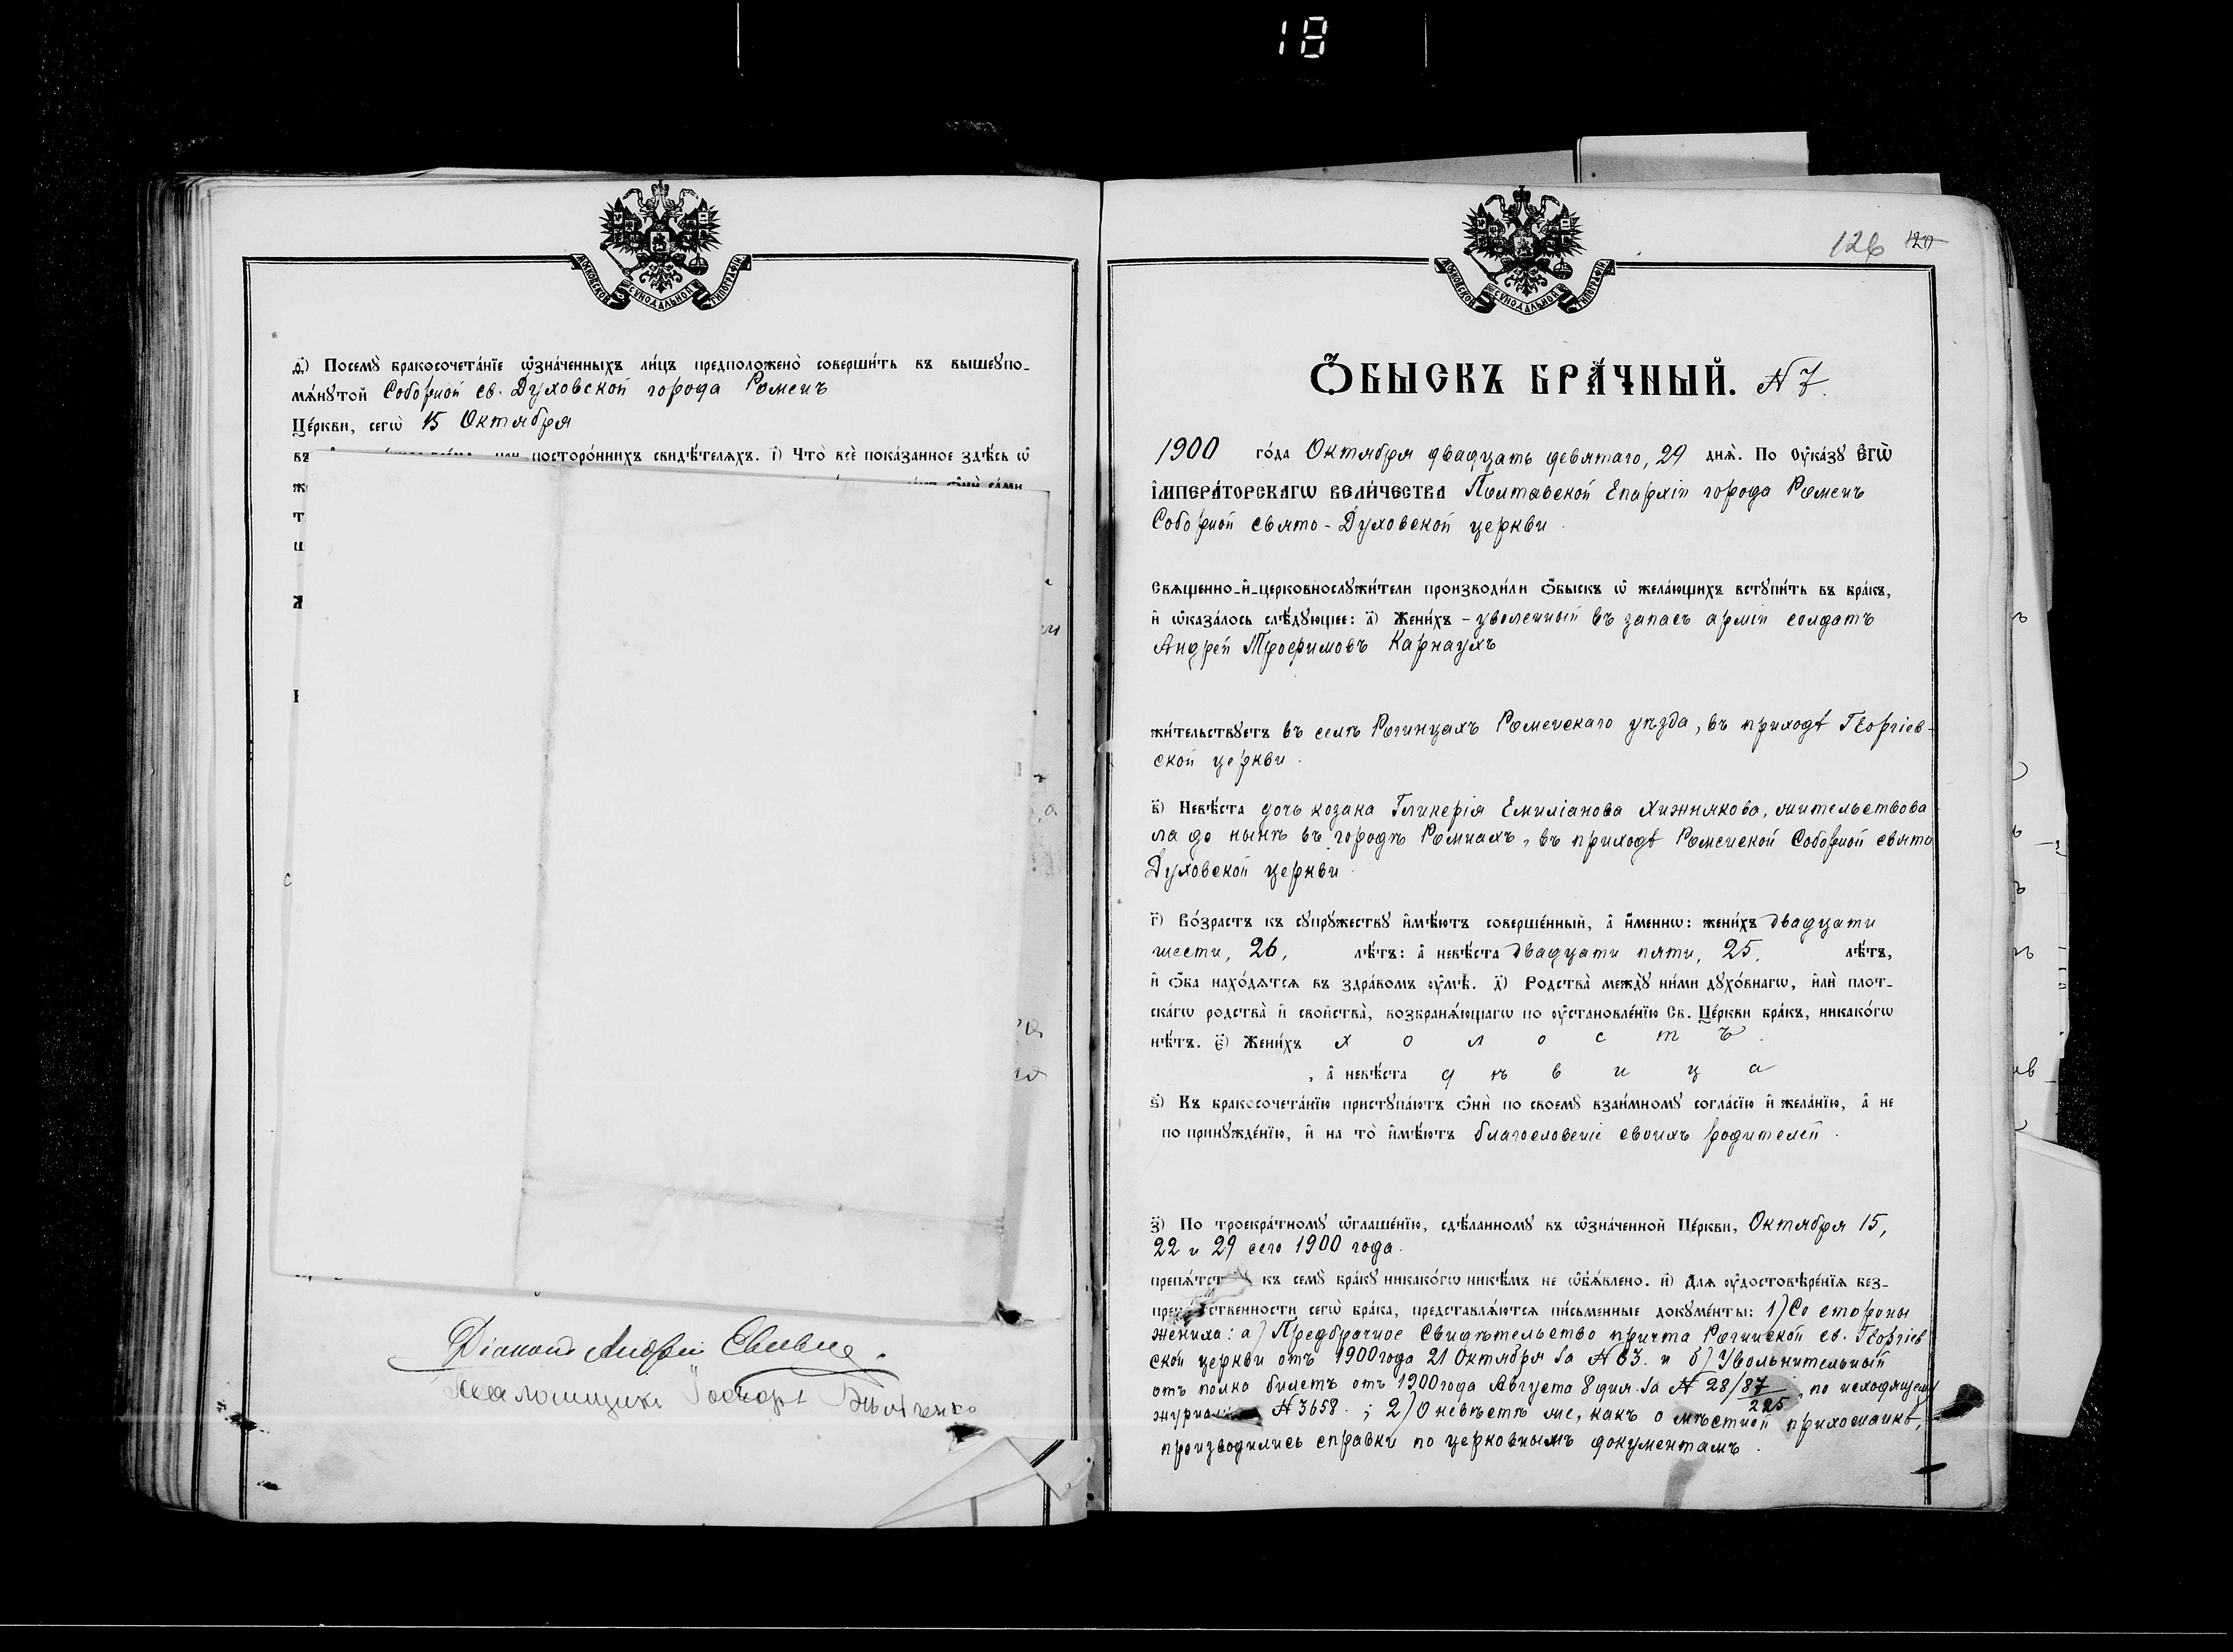 18
МОСКОВСКОЙ СѴНОДАЛЬНОЙ ТИПОГРАФІИ
ѳ҃) Посемꙋ̀ бракосочета́нїе ѡ҆зна́ченныхъ ли́цъ предположено̀ соверши́ть въ вышеꙋпо-
мѧ́нꙋтой Соборной св. Духовской города Роменъ
Це́ркви, сегѡ̀ 15 Октября
въ посторо́ннихъ свидѣ́телѧхъ. і҃) Что̀ всѐ пока́занное здѣ́сь ѡ҆
ж ѻ҆нѝ са́ми,
т
Діаконъ Андрей
126 127
МОСКОВСКОЙ СѴНОДАЛЬНОЙ ТИПОГРАФІИ
Ѻ҆БЫСКЪ БРА́ЧНЫЙ. N 7.
1900 го́да Октября двадцать девятаго, 29 днѧ̀. По Оу҆ка́зꙋ Є҆гѡ̀
І҆мпера́торскагѡ вели́чества Полтавской Епархіи города Роменъ
Соборной свято-Духовской церкви.
Свѧщенно-и҆-церковнослꙋжи́тели производи́ли ѻ҆́быскъ ѡ҆ жела́ющихъ встꙋпи́ть въ бра́къ,
и҆ ѡ҆каза́лось слѣ́дꙋющее: а҃) Жени́хъ - уволенный въ запасъ арміи солдатъ
Андрей Трофимовъ Карнаухъ
жи́тельствꙋетъ въ селѣ Рогинцахъ Роменскаго уѣзда, въ приходѣ Георгіев-
ской церкви.
в҃) Невѣ́ста дочь козака Гликерія Емиліанова Хижнякова, жительствова
ла до нынѣ въ городѣ Ромнахъ, въ приходѣ Роменской Соборной свято
Духовской церкви.
г҃) Во́зрастъ къ сꙋпрꙋ́жествꙋ и҆мѣ́ютъ соверше́нный, а҆ и҆́менно: жени́хъ двадцати
шести, 26, лѣ́тъ: а҆ невѣ́ста двадцати пяти, 25, лѣ́тъ,
и҆ ѻ҆́ба нахо́дѧтсѧ въ здра́вомъ оу҆мѣ̀. д҃) Родства̀ междꙋ̀ ни́ми дꙋхо́внагѡ, и҆лѝ плот-
ска́гѡ родства̀ и҆ свойства̀, возбранѧ́ющагѡ по оу҆становле́нїю Св. Це́ркви бра́къ, никако́гѡ
нѣ́тъ. є҃) Жени́хъ х о л о с т ъ.
, а҆ невѣ́ста д ѣ в и ц а
ѕ҃) Къ бракосочета́нїю пристꙋпа́ютъ ѻ҆нѝ по своемꙋ̀ взаи́мномꙋ согла́сїю и҆ жела́нїю, а҆ не
по принꙋжде́нїю, и҆ на то̀ и҆мѣ́ютъ благословеніе своихъ родителей.
з҃) По троекра́тномꙋ ѡ҆глаше́нїю, сдѣ́ланномꙋ въ ѡ҆зна́ченной Це́ркви, Октября 15,
22 и 29 сего 1900 года.
препѧ́тст къ семꙋ̀ бра́кꙋ никако́гѡ никѣ́мъ не ѡ҆б̾ѧ́влено. и҃) Длѧ оу҆достовѣре́нїѧ без-
пре ственности сегѡ̀ бра́ка, представлѧ́ютсѧ пи́сьменные докꙋме́нты: 1) Со стороны
жениха: а) Предбрачное Свидѣтельство причта Рогинской св. Георгіев
ской церкви отъ 1900 года 21 Октября за N 63. и б) Увольнительный
отъ полка билетъ отъ 1900 года Августа 8 дня за N 28/87/225, по исходящему
журна N 3658.; 2) О невѣстѣ же, какъ о мѣстной прихожанкѣ,
производились справки по церковнымъ документамъ.